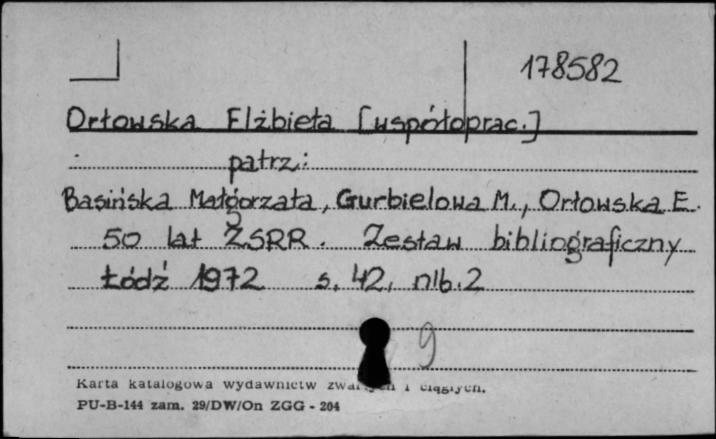 178582
Orłowska Elżbieta [współoprac.]
patrz:
Basińska Małgorzata, Gurbielowa M., Orłowska E.
50 lat ZSRR. Zestaw bibliograficzny
Łódź 1972 s. 42, nlb. 2
9
Karta katalogowa wydawnictw zwartych i ciągłych.
PU-B-144 zam. 29/DW/On ZGG - 204